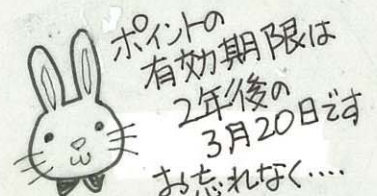 ポイントの
有効期限は
2年後の
3月20日です
お忘れなく‥‥